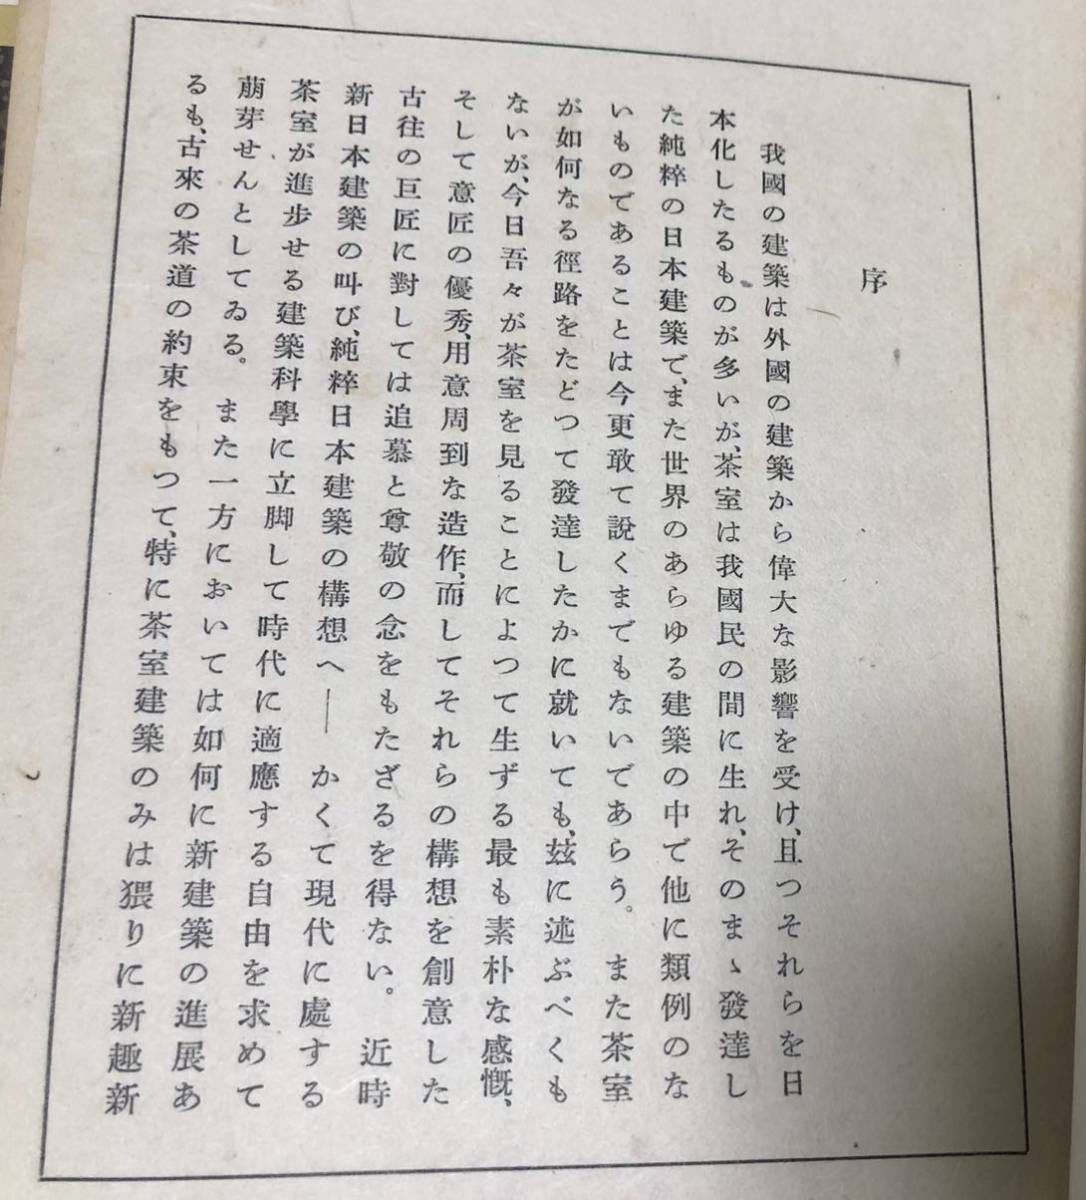 序
我國の建築は外國の建築から偉大な影響を受け、且つそれらを日
本化したるものが多いが、茶室は我國民の間に生れ、そのまゝ發達し
た純粹の日本建築で、また世界のあらゆる建築の中で他に類例のな
いものであることは今更敢て説くまでもないであらう。また茶室
が如何なる徑路をたどつて發達したかに就いても、玆に述ぶべくも
ないが、今日吾々が茶室を見ることによつて生ずる最も素朴な感慨、
そして意匠の優秀、用意周到な造作、而してそれらの構想を創意した
古往の巨匠に對しては追慕と尊敬の念をもたざるを得ない。近時
新日本建築の叫び、純粹日本建築の構想へ――かくて現代に處する
茶室が進步せる建築科學に立脚して時代に適應する自由を求めて
萠芽せんとしてゐる。また一方においては如何に新建築の進展あ
るも、古來の茶道の約束をもつて、特に茶室建築のみは猥りに新趣新